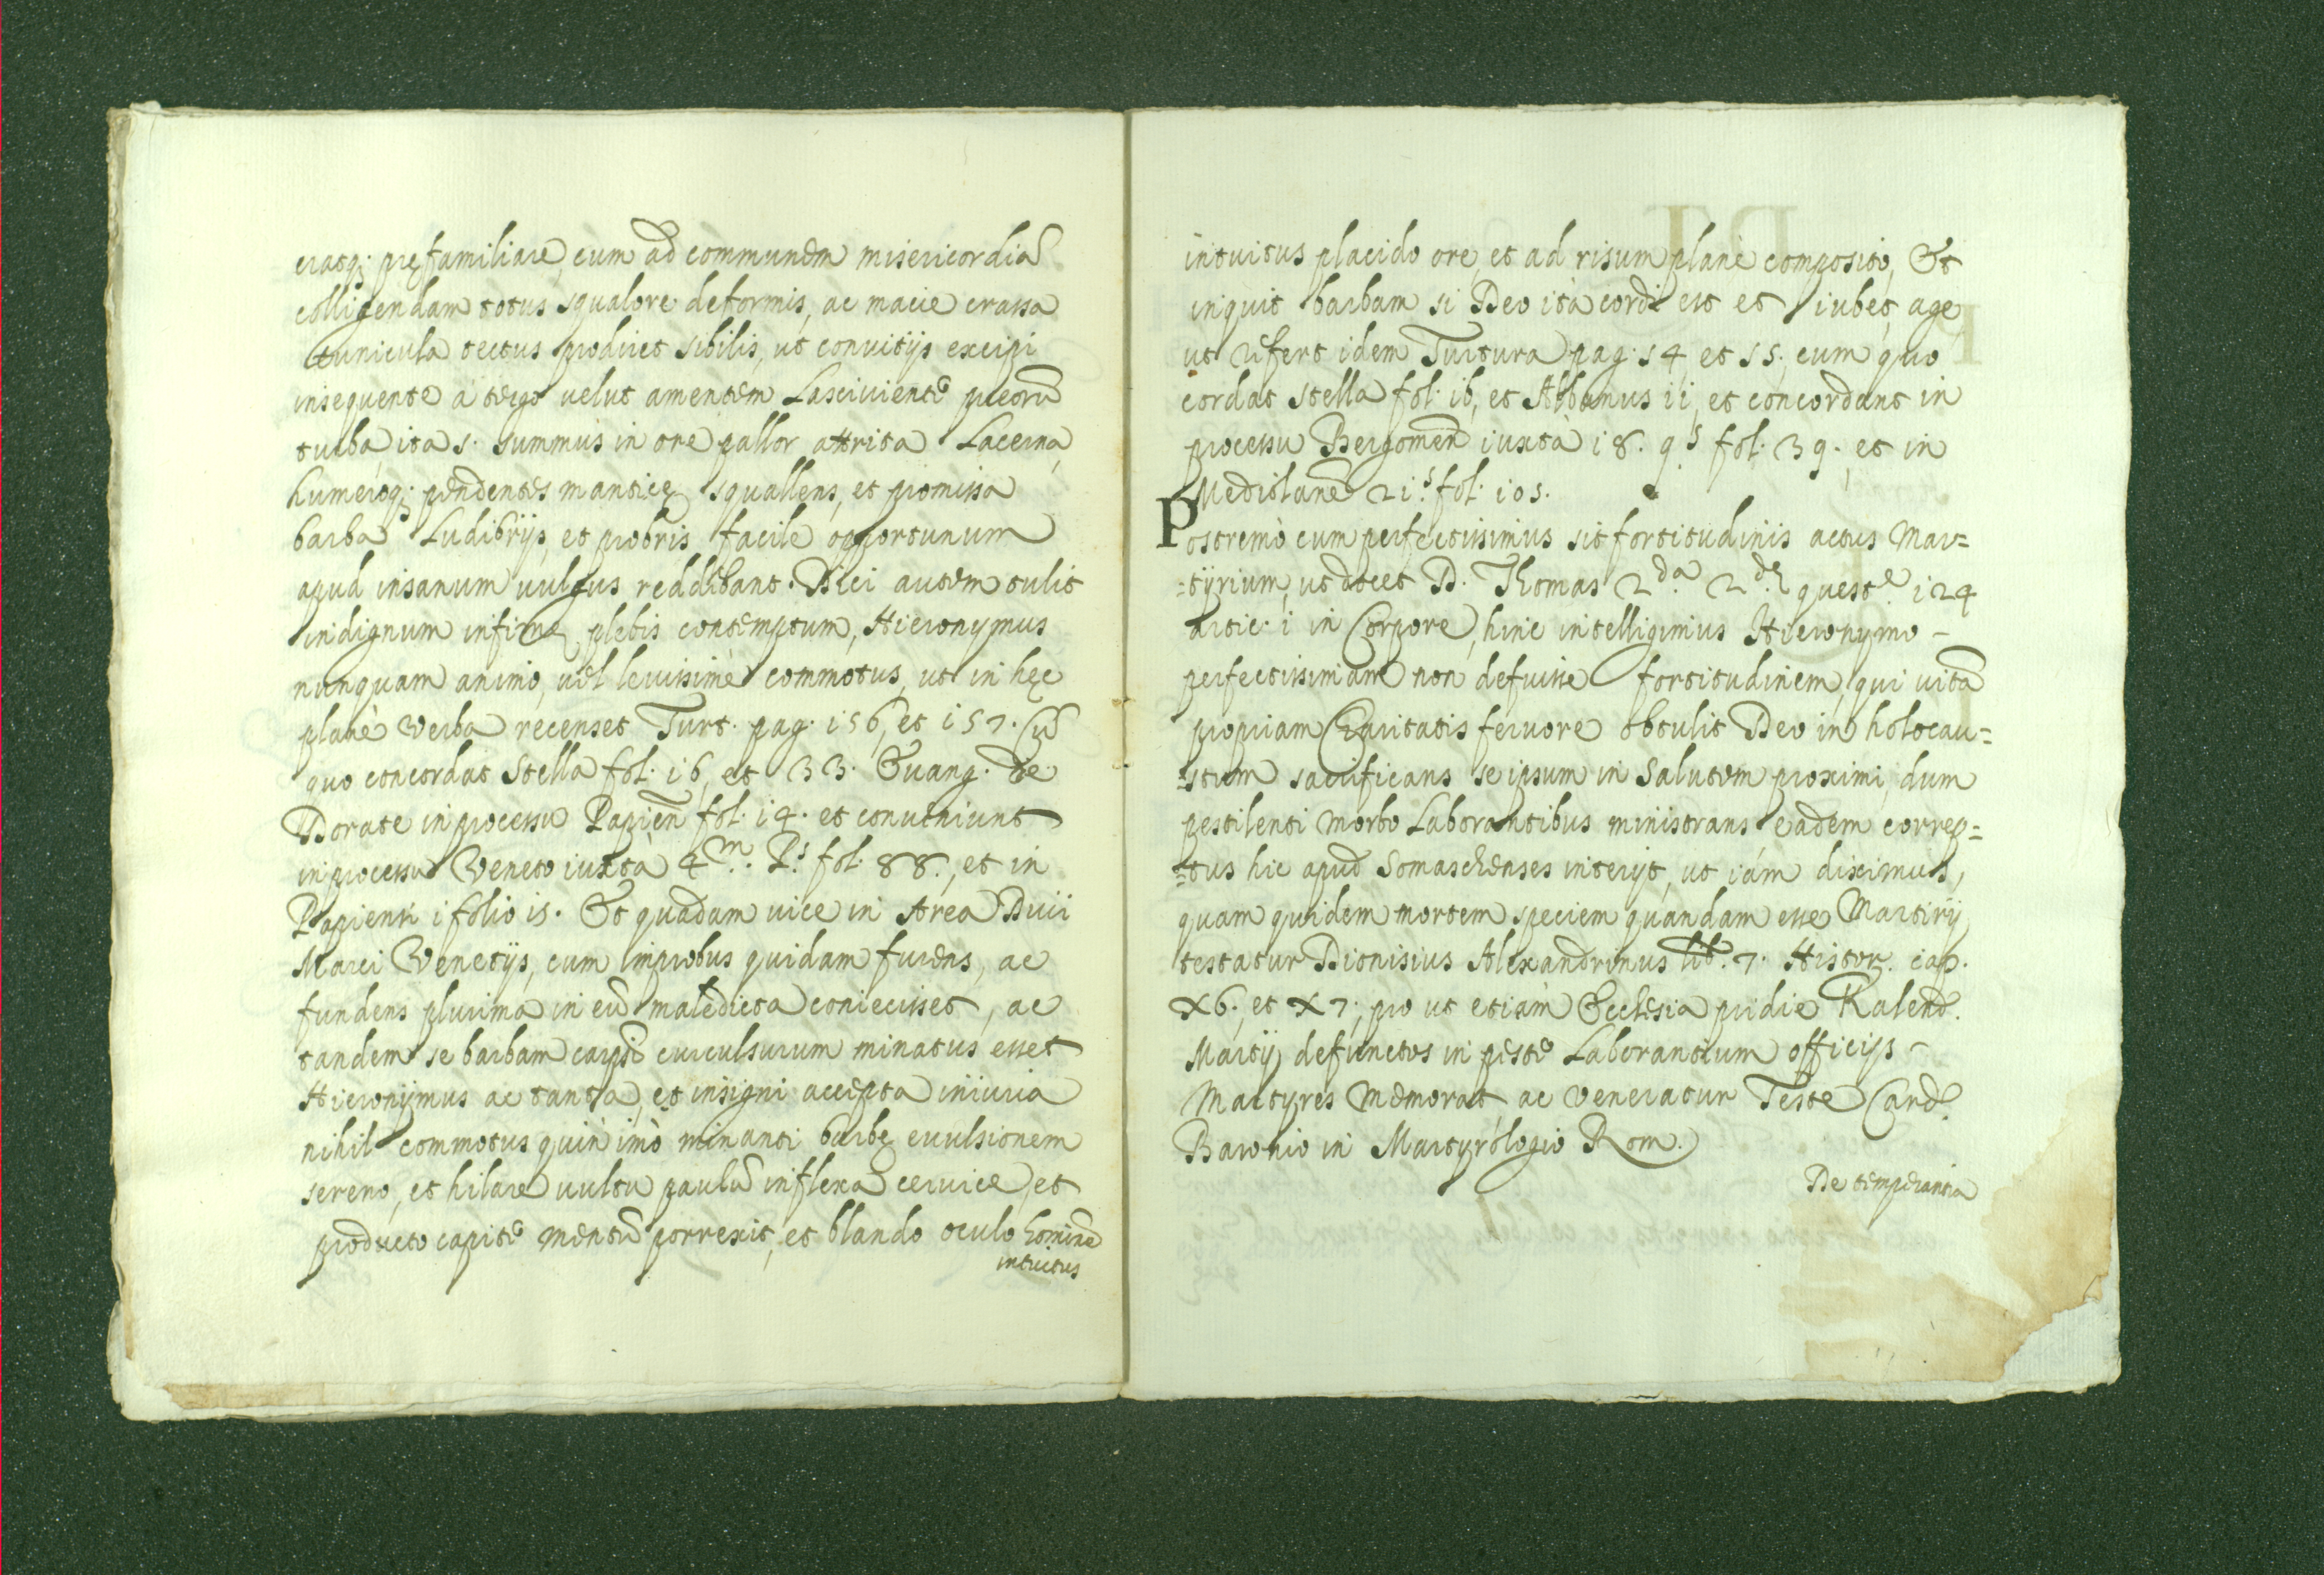 eratq; pręfamiliare, cum ad communem misericordiã
colligendam totus squalore deformis, ac macie crassa
tunicula tectus prodiret sibilis, ut convitijs excipi
insequente à tergo velut amentem Lasciviente pueorũ
turba, ita s. summus in ore pallor attrita Lacerna,
humerisq; pendentes manticę squallens, et promissa
barba Ludibrijs, et probris facile opportunum
apud insanum vulgus reddebant. Dici autem tulit
indignum infimę plebis contemptum, Hieronymus
nunquam animo, vel levissimè commotus, ut in hęc
planè verba recenset Turt. pag. 156, et 157. Cũ
quo concordat Stella fol. 16, et 33. Evang. de
Dorate in processu Papien fol. 14. et conveniunt
in processu Veneto iuxtà 4.m P.s fol. 88., et in
Papiensi i folio 15. Et quadam vice in Area Divi
Marci Venetijs, cum improbus quidam furens, ac
fundens plurima in eũ maledicta coniecisset, ac
tandem se barbam carpti evulsurum minatus esset
Hieronijmus ac tanta, et insigni accepta iniuria
nihil commotus quin imò minanti barbę evulsionem
sereno, et hilare vultu paulũ inflexa cervice, et
producto capite mentũ porrexit, et blando oculo hominẽ
intuitus
intuitus placido ore, et ad risum planè composito, Et
inquit barbam si Deo ità cordi est et iubet, age
ut refert idem Turtura pag. 54 et 55. cum quo
cordat Stella fol. 16, et Albanus 11, et concordant in
processu Bergomen iuxtà 18. q.s fol. 39., et in
Mediolanẽ 21.s fol. 105.
Postremò cum perfectissimus sit fortitudinis actus Mar=
=tyrium, ut docet D. Thomas 2.da 2.dę quest.e 124
artic. 1 in Corpore, hinc intelligimus Hieronymo -
perfectissimam non defuisse fortitudinem, qui vitã
propriam Charitatis fervore obtulit Deo in holocau=
=stum sacrificans se ipsum in Salutem proximi, dum
pestilenti morbo Laborantibus ministrans eadem correp=
=tus hic apud Somaschenses interijt, ut iám diximus,
quam quidem mortem speciem quandam esse Martirij
testatur Dionisius Alexandrinus lib. 7. Histor. cap.
X6., et X7, pro ut etiàm Ecclesia pridie Kalend.
Martij defunctos in peste Laborantium officijs -
Martyres memorat, ac veneratur Teste Card.
Baronio in Martyrologio Rom.
De temperantia